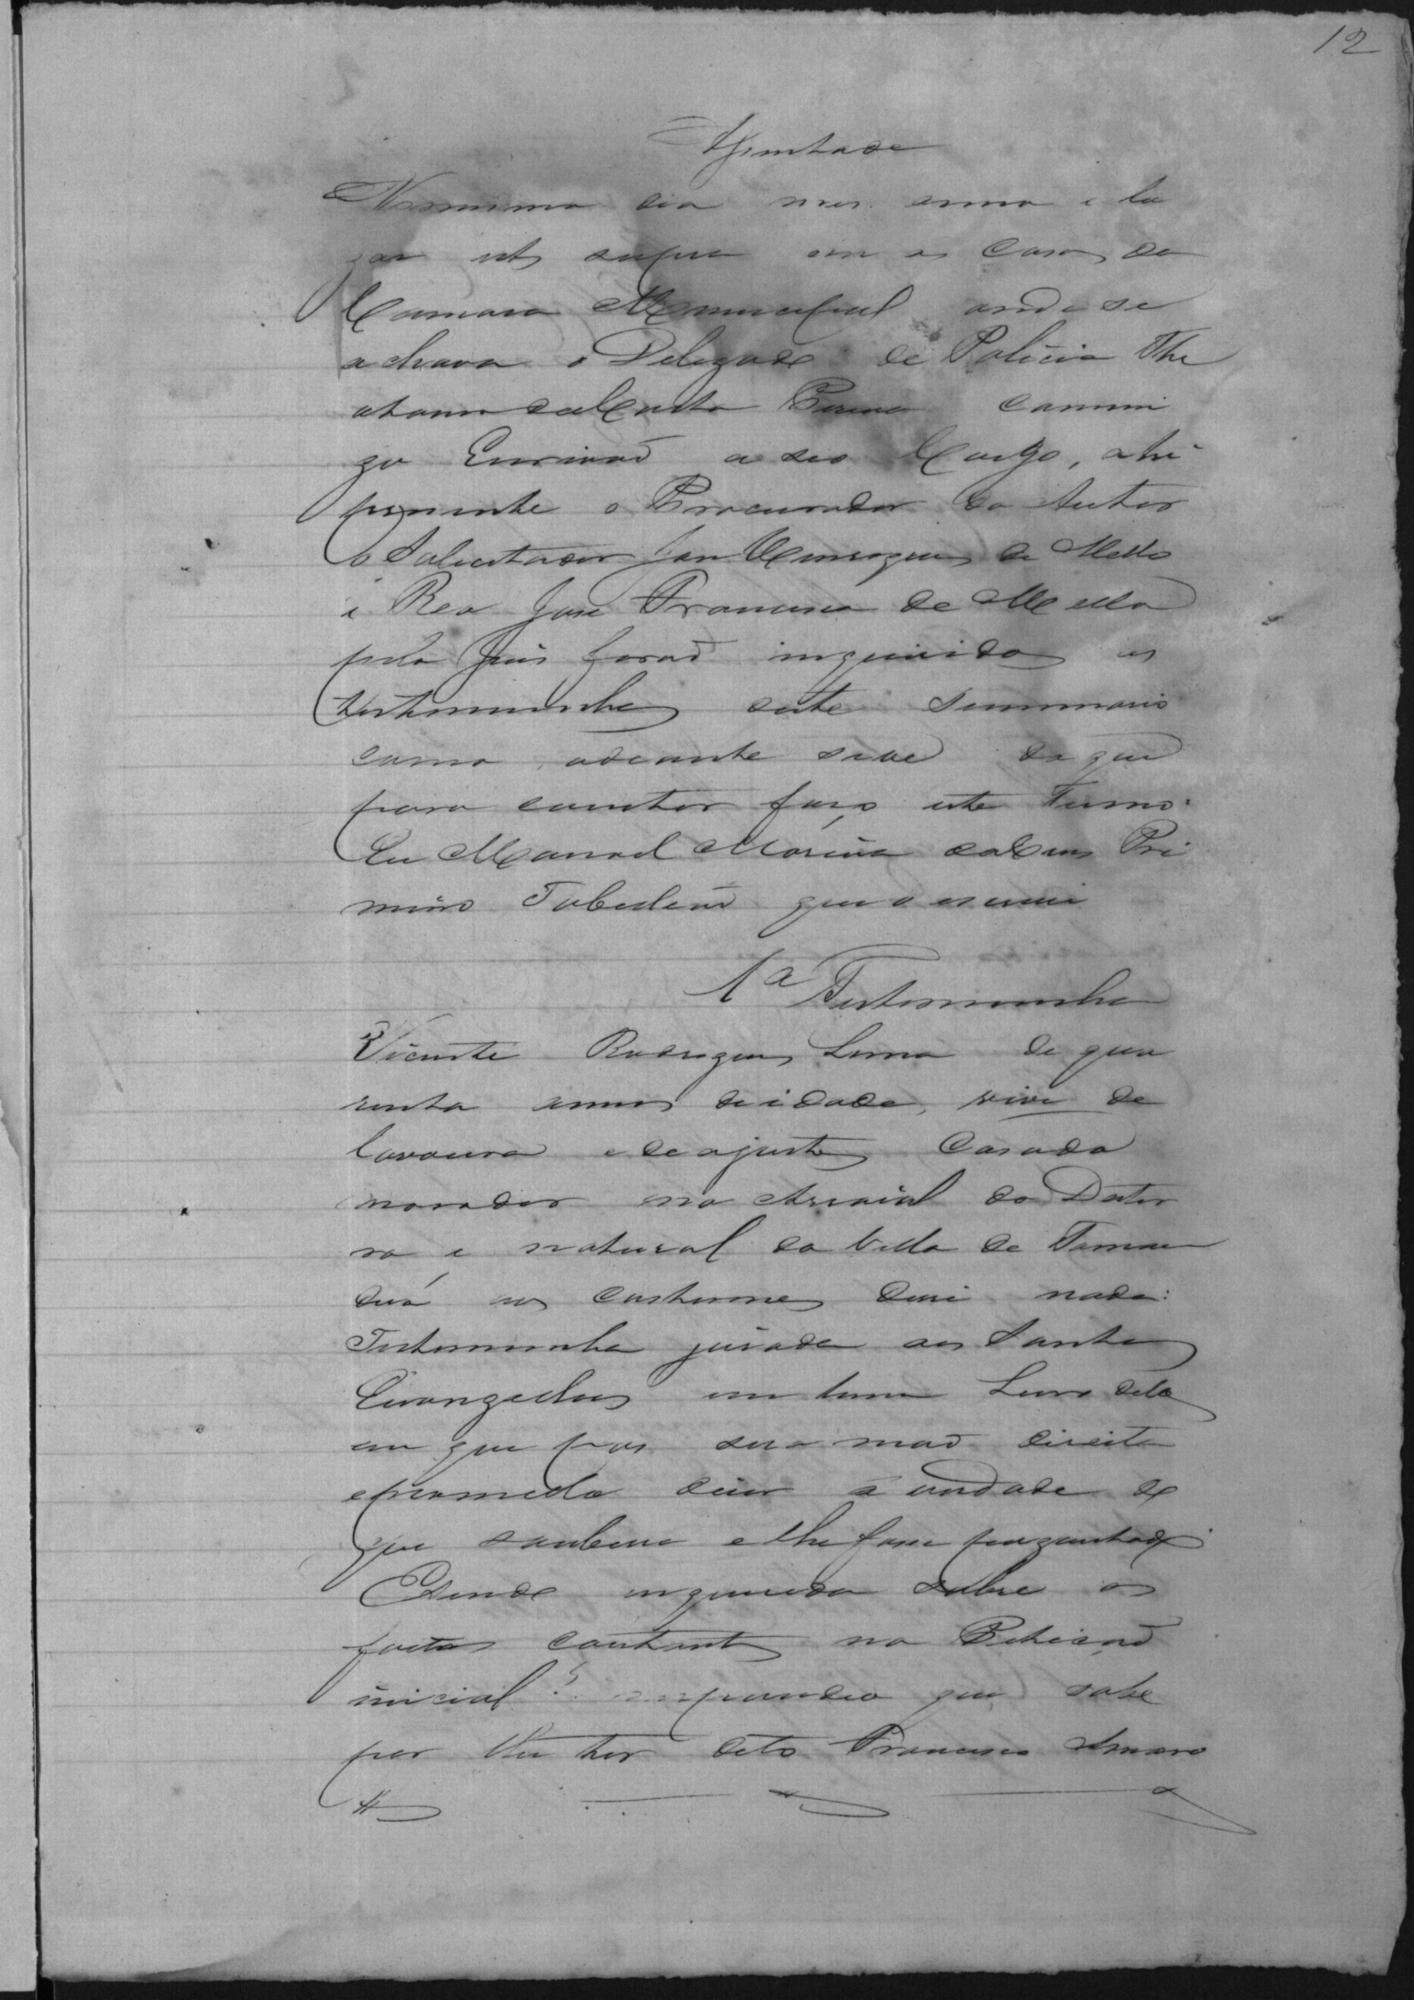 12
Assentada
No mesmo dia mes anno e lu
gar ut supra em as Casas da
Camara Municipal onde se
achava o Delegado de Policia The
otonio da Costa Pereira commi
go Escrivaõ a seo Cargo, ahi
presente o Procurador do Autor
o Solicitador Joze Henriques de Mello
e Reo José Francisco de Mello
pelo Juis foraõ inqueridas as
testemunhas deste Summario
como adeante se ve do que
para constar faço este Termo.
Eu Manoel Moreira da Cruz Pri
meiro Tabeliaõ que o escrevi
1ª Testemunha
Vicente Rodrigues Lima de qua
renta annos de idade, vive de
lavoura e de ajustes Casado
morador no Arraial do Dester
ro e natural da Villa de Taman
duá aos costumes disse nada:
Testemunha jurada aos Santos
Evangelhos em hum Livro delles
em que pos sua maõ direita
e prometeo diser a verdade do
que soubesse e lhe fosse perguntado.
E sendo inquerida sobre os
factos constantes na Petiçaõ
inicial? respondeo que sabe
por ter dito Francisco Amaro